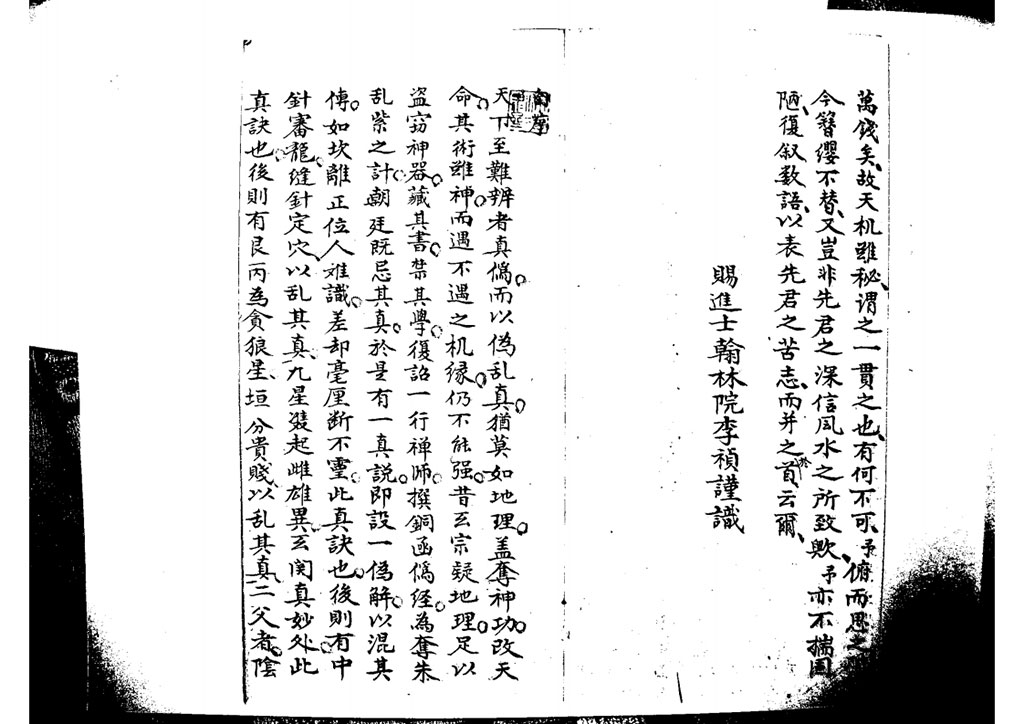 萬錢矣、故天机雖秘、谓之一貫之也、有何不可、予俯而思之
今簪缨不替、又豈非先君之深信风水之所致歟、予亦不揣固
陋、復叙数語、以表先君之苦志、而并之於首、云爾、
賜進士翰林院李禎謹識
天下至難辨者真僞。而以偽乱真。猶莫如地理。盖奪神功。改天
命。其術雖神。而遇不遇之机缘。仍不能强。昔玄宗疑地理。足以
盗窃神器。藏其書。禁其學。復詔一行禅师。撰銅函僞经。為奪朱
乱紫之計。朝廷既忌其真。於是有一真説。即設一偽解。以混其
傳。如坎離正位人难識。差却毫厘断不靈。此真訣也。後則有中
針審龍。缝針定穴、以乱其真、九星雙起雌雄異。玄関真妙处。此
真訣也。後則有艮丙為貪狼星、垣分貴賤、以乱其真、二父者。陰